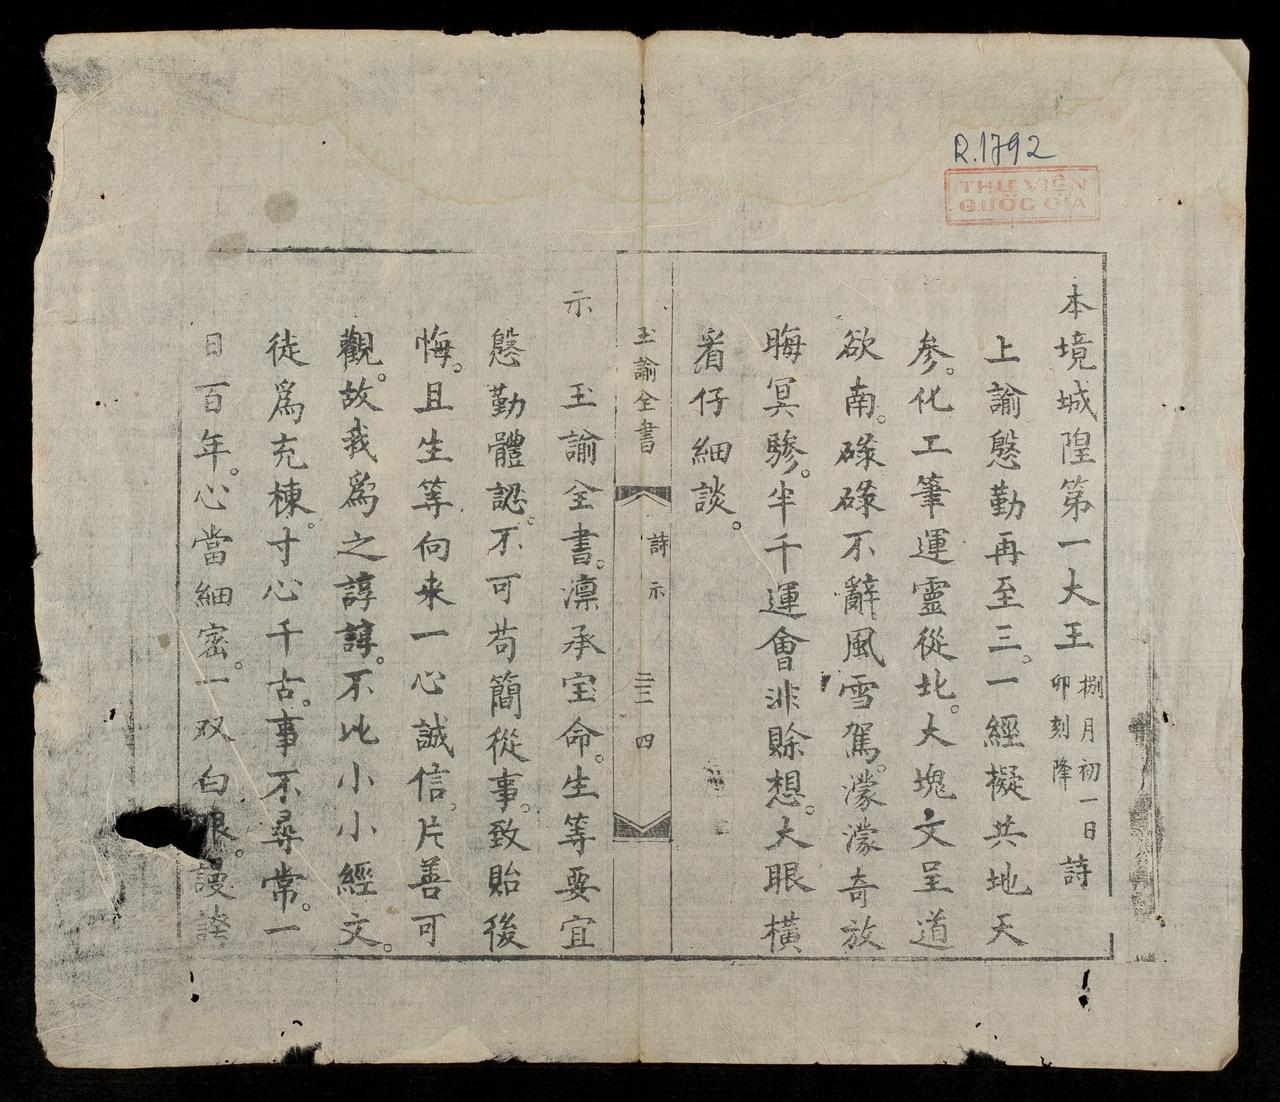 R.1792
THƯ VIỆN
QUỐC GIA
本境城隍第一大王 捌月初一日卯刻降 詩
上諭慇勤再至三。一經擬共地天
參。化工筆運靈從北。大塊文呈道
欲南。碌碌不辭風雪駕。濛濛奇放
晦冥驂。半千運會非賒想。大眼橫
看仔細談。
玉諭全書 詩示 三 四
示
玉諭全書。凛承宝命。生等要宜
慇勤體認。不可苟簡從事。致貽後
悔。且生等向来一心誠信。片善可
觀。故我爲之諄諄。不比小小經文。
徒爲充棟。寸心千古。事不尋常。一
日百年。心當細密。一双白眼。謾